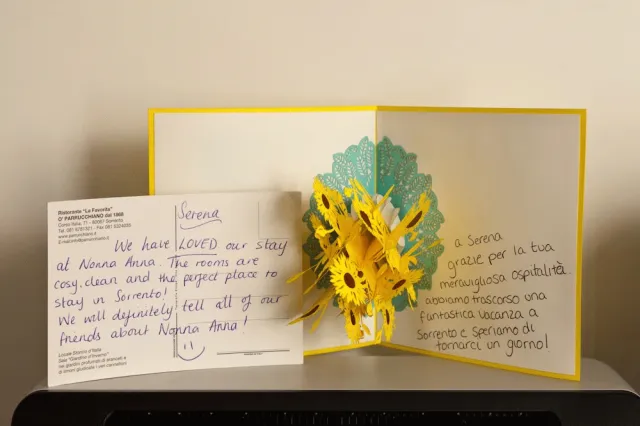 Ristorante "La Favorita"
O' PARRUCCHIANO dal 1868
Corso Italia, 71 - 80067 Sorrento
Serena
We have LOVED our stay
at Nonna Anna. The rooms are
cosy, clean and the perfect place to
stay in Sorrento!
We will definitely tell all of our
friends about Nonna Anna!
Locale Storico d'Italia
Sale "Giardino d'Inverno"
a Serena
grazie per la tua
meravigliosa ospitalità.
abbiamo trascorso una
fantastica vacanza a
Sorrento e speriamo di
tornarci un giorno!